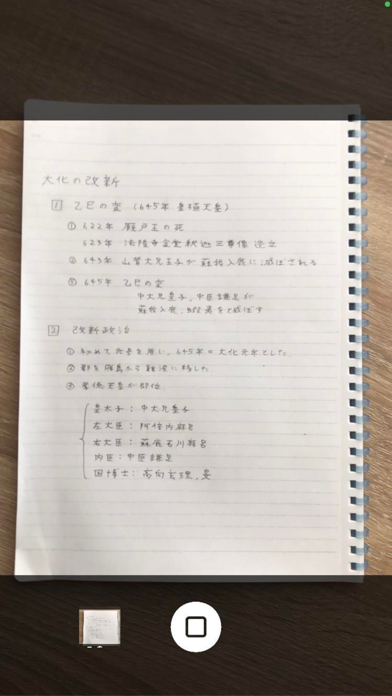 大化の改新
1 乙巳の変 (645年 皇極天皇)
① 622年 厩戸王の死
623年 法隆寺金堂釈迦三尊像 造立
② 643年 山背大兄王子が蘇我入鹿に滅ぼされる
③ 645年 乙巳の変
中大兄皇子、中臣鎌足が
蘇我入鹿、蝦夷を滅ぼす
2 改新政治
① 初めて元号を用い、645年を大化元年とした。
② 都を飛鳥から難波に移した
③ 孝徳天皇が即位
皇太子：中大兄皇子
左大臣：阿倍内麻呂
右大臣：蘇我石川麻呂
内臣：中臣鎌足
国博士：高向玄理、旻